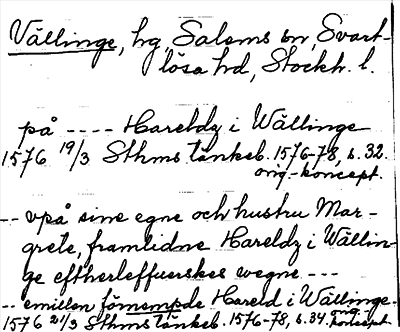 Vällinge, hg, Salems sn, Svart-
lösa hd, Stockh. l.
på ---- Hareldz i Wällinge
1576 19/3 Sthms tänkeb. 1576-78, s. 32.
orig.-koncept.
-- vpå sine egne och hustru Mar-
grete, framlidne Hareldz i Wällin-
ge eftherleffuerskes wegne ---
-- emillan förnempde Hareld i Wällinge.
1576 21/3 Sthms tänkeb. 1576-78, s. 34. koncept.